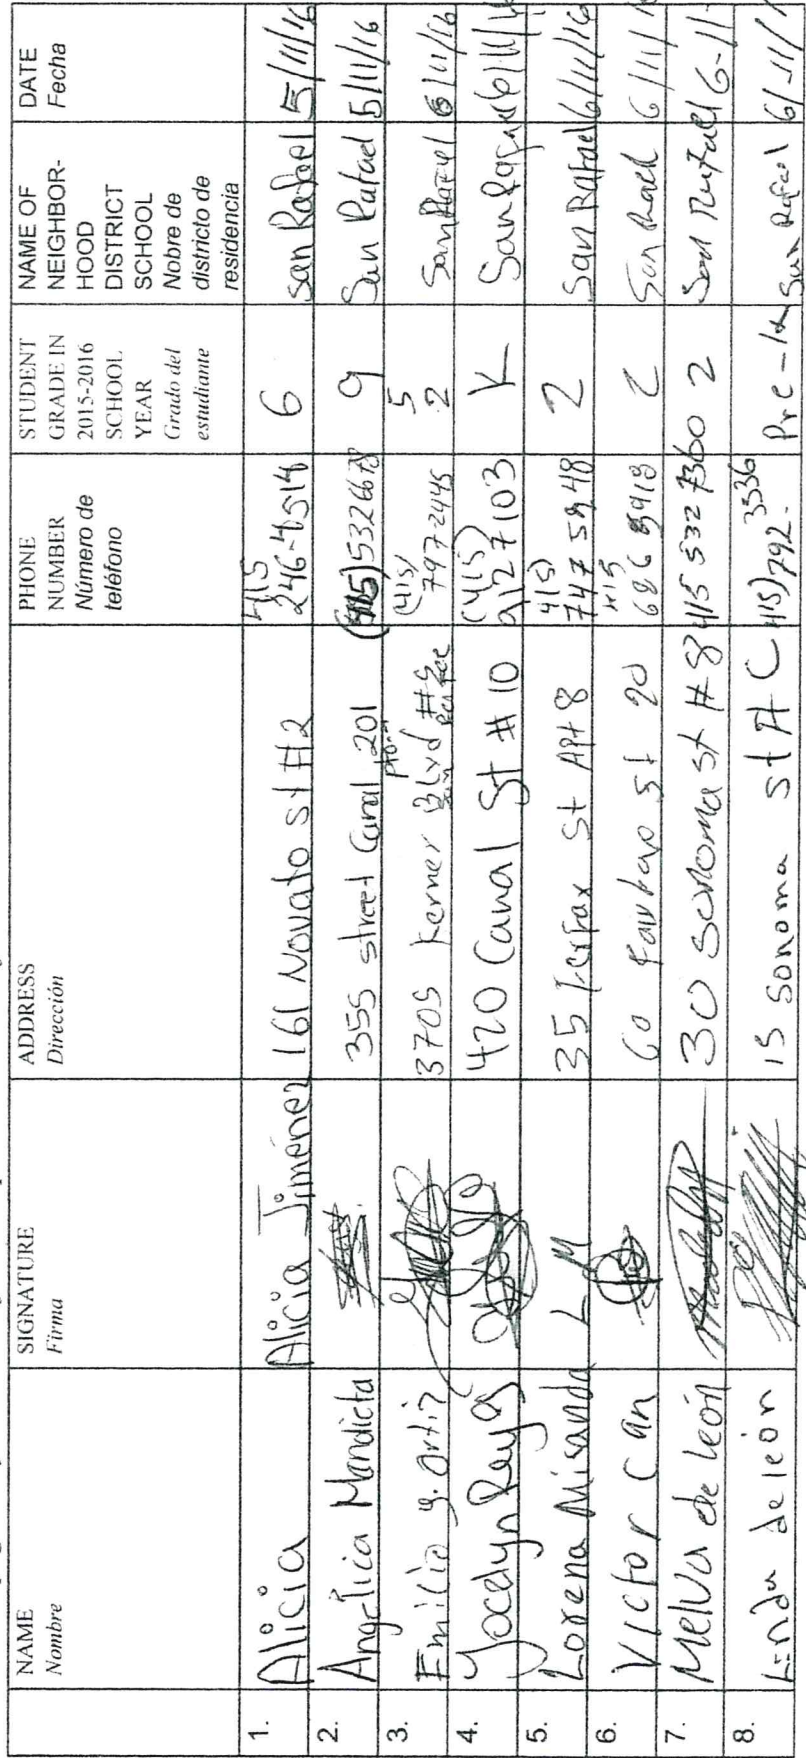 NAME
Nombre
SIGNATURE
Firma
ADDRESS
Dirección
PHONE
NUMBER
Número de
teléfono
STUDENT
GRADE IN
2015-2016
SCHOOL
YEAR
Grado del
estudiante
NAME OF
NEIGHBOR-
HOOD
DISTRICT
SCHOOL
Nobre de
districto de
residencia
DATE
Fecha
1. Alicia Alicia Jiménez 161 Novato st #2 415 246-4514 6 San Rafael 5/11/16
2. Angelica Mandieta 355 street Canal 201 (415) 5326678 9 San Rafael 5/11/16
3. Emilio y. Ortiz 3705 Kerner Blvd #5 (415) 797-2445 5 2 San Rafael 6/11/16
4. Jocelyn Reyes 420 Canal St #10 (415) 9127103 K San Rafael 6/11/16
5. Lorena Miranda L M 35 Fairfax St Apt 8 415) 747 5948 2 San Rafael 6/11/16
6. Victor Can 60 Fairfax st 20 415 686 8918 2 San Rafael 6/11/
7. Melva de león 30 Sonoma st #8 415 532 7360 2 San Rafael 6-11-
8. Linda de león 15 Sonoma st # C 415) 792-3536 Pre-K San Rafael 6/-11/